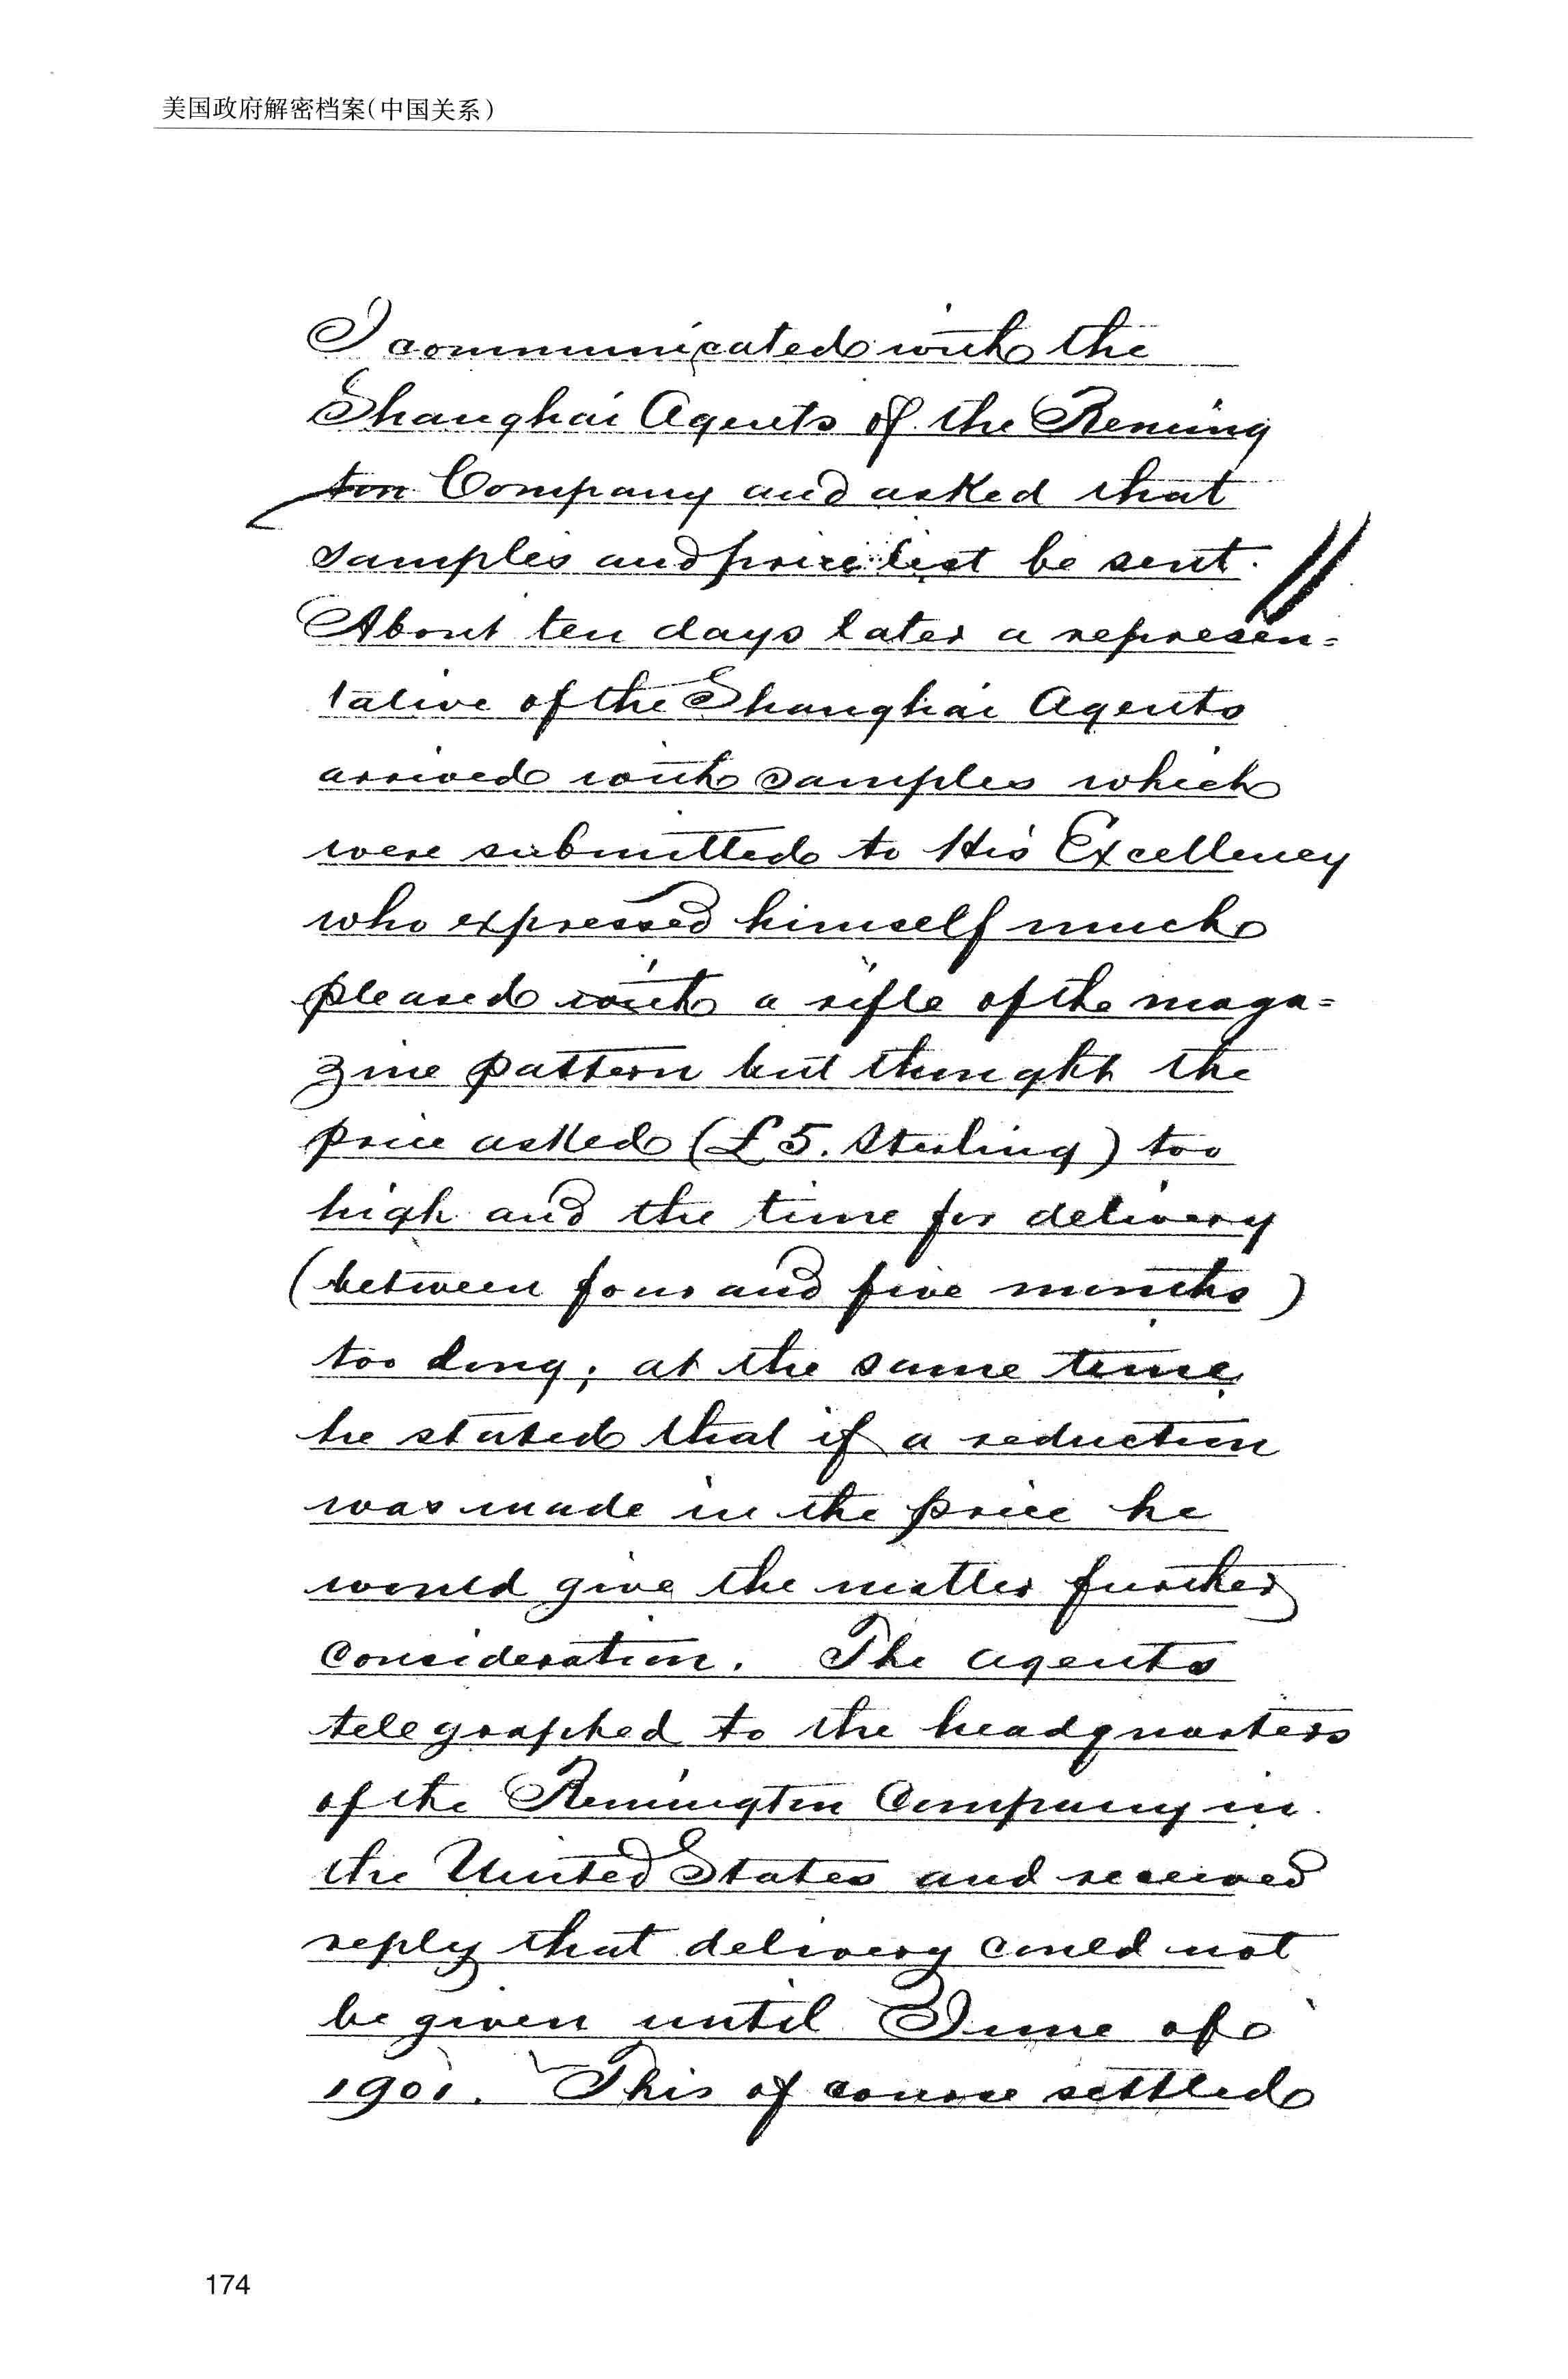 美国政府解密档案(中国关系)
I communicated with the
Shanghai Agents of the Reming
ton Company and asked that
samples and price list be sent.
About ten days later a represen=
tative of the Shanghai Agents
arrived with samples which
were submitted to His Excellency
who expressed himself much
pleased with a rifle of the maga=
zine pattern but thought the
price asked (£5. Sterling) too
high and the time for delivery
(between four and five months)
too long; at the same time
he stated that if a reduction
was made in the price he
would give the matter further
consideration. The agents
telegraphed to the headquarters
of the Remington Company in
the United States and received
reply that delivery could not
be given until June of
1901. This of course settled
174